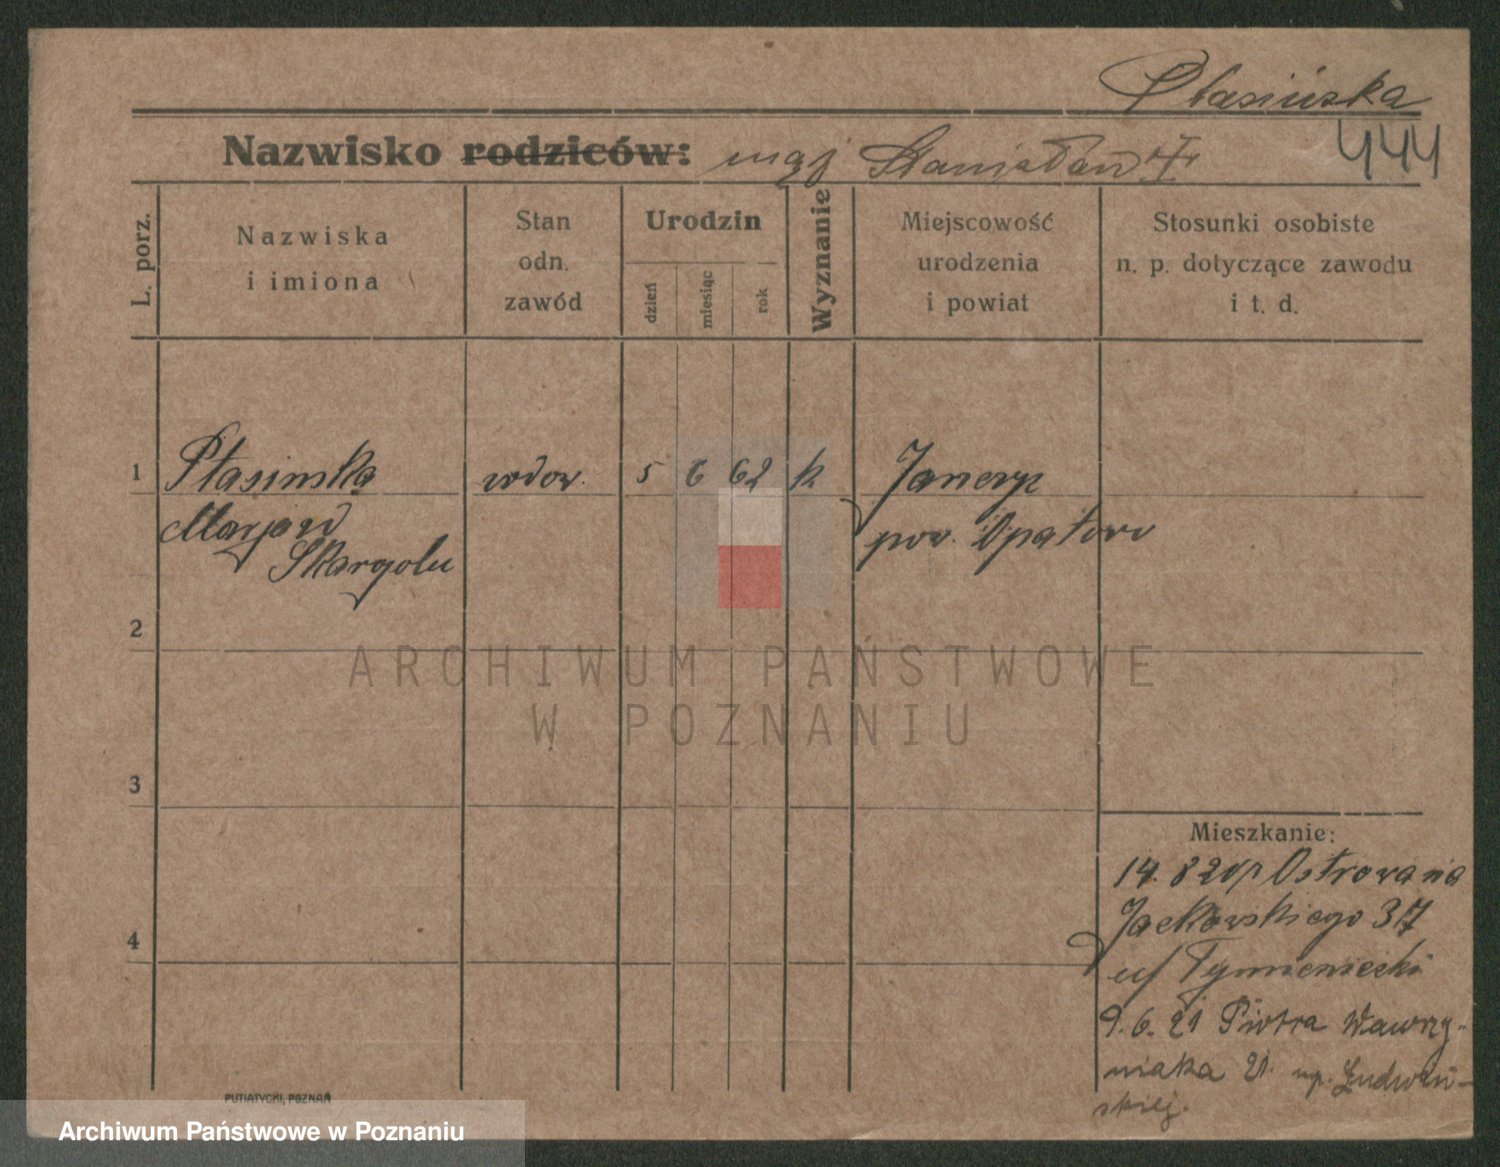 Ptasińska
444
Nazwisko rodziców: mąż Stanisław †
L. porz.
Nazwiska
i imiona
Stan
odn.
zawód
Urodzin
dzień
miesiąc
rok
Wyznanie
Miejscowość
urodzenia
i powiat
Stosunki osobiste
n. p. dotyczące zawodu
i t. d.
1 Ptasinska wdow. 5 6 62 k
Marja
pow. Opatow
2
ARCHIWUM PAŃSTWOWE
W POZNANIU
3
Mieszkanie:
14. 8 20 Ostrowa
Jackowskiego 37
u/ Tymieniecki
4
9. 6. 21 Piotra Wawrzy-
niaka 21.
skiej.
PUTIATYCKI, POZNAŃ
Archiwum Państwowe w Poznaniu